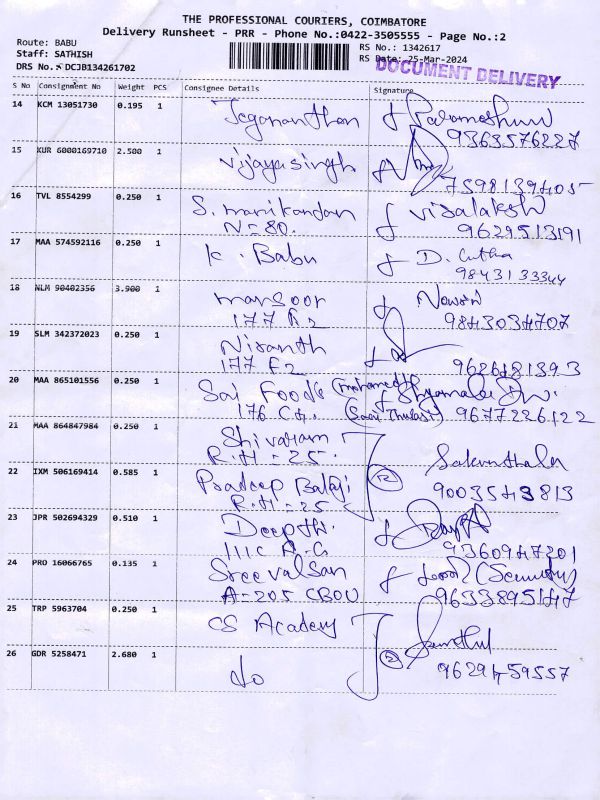 THE PROFESSIONAL COURIERS, COIMBATORE
Delivery Runsheet - PRR - Phone No.:0422-3505555 - Page No.:2
Route: BABU
Staff: SATHISH
DRS No.: DCJB134261702
RS No.: 1342617
RS Date: 25-Mar-2024
DOCUMENT DELIVERY
S No Consignment No Weight PCS Consignee Details Signature
14 KCM 13051730 0.195 1 Jegananthan
9363576227
15 KUR 6000169710 2.500 1 Vijayasingh
7598139405
16 TVL 8554299 0.250 1 S. Manikandan Visalakshi
N-80. 9629513191
17 MAA 574592116 0.250 1 K. Babu D.
9843133344
18 NLM 90402356 3.900 1 mansoor
177 F2 9843034707
19 SLM 342372023 0.250 1 Nisanth
177 F2 9626481393
20 MAA 865101556 0.250 1 Sai Foods (mohamed) Shyamala
176 (Saai Thulasi) 9677226122
21 MAA 864847984 0.250 1 Shivaram
R.H-25.
22 IXM 506169414 0.585 1 Pradeep Balaji (2) Sakunthala
R.H-25 9003543813
23 JPR 502694329 0.510 1 Deepthi.
111C A.G 9360947201
24 PRO 16066765 0.135 1 Sreevalsan (Security)
A-205 CBOU 9633895147
25 TRP 5963704 0.250 1 CS Academy
26 GDR 5258471 2.680 1 do (2) 9629459557